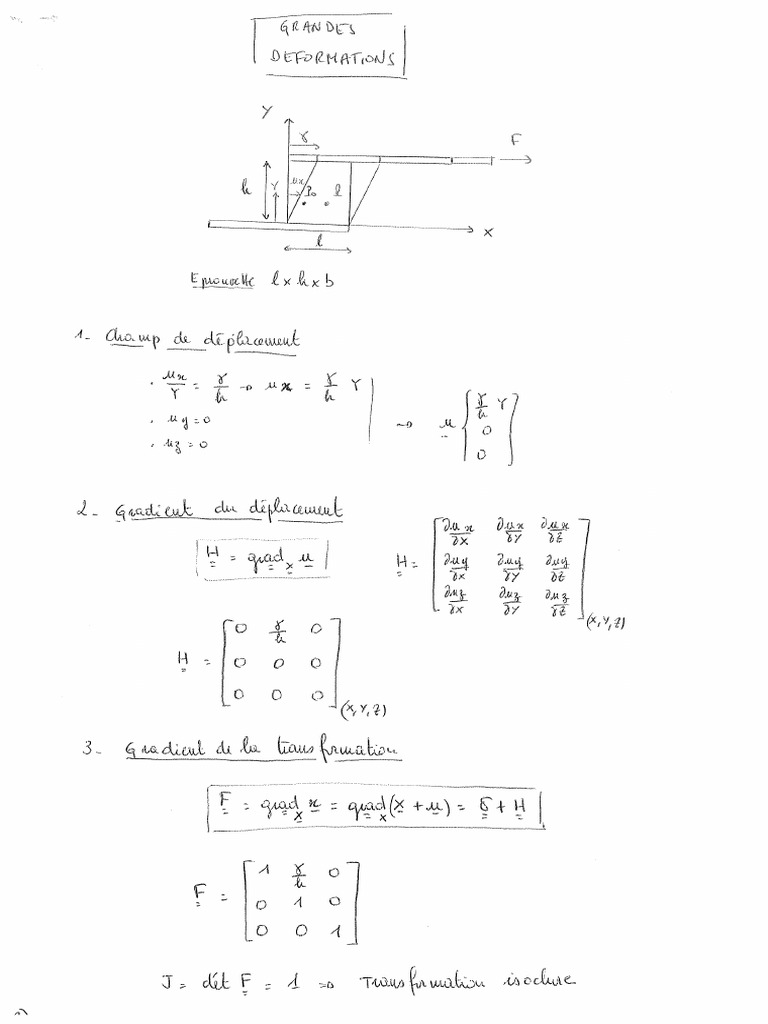 GRANDES
DEFORMATIONS
Y
γ
F
h
Y
ux
P0
P
X
l
Eprouvette l x h x b
1- Champ de déplacement
• ux/Y = γ/h → ux = γ/h Y
• uy = 0
• uz = 0
→ u { γ/h Y
0
0 ]
2- Gradient du déplacement
H = grad_X u
H = [ ∂ux/∂X ∂ux/∂Y ∂ux/∂Z
∂uy/∂X ∂uy/∂Y ∂uy/∂Z
∂uz/∂X ∂uz/∂Y ∂uz/∂Z ] (X, Y, Z)
H = [ 0 γ/h 0
0 0 0
0 0 0 ] (X, Y, Z)
3- Gradient de la transformation
F = grad_X x = grad_X (X + u) = δ + H
F = [ 1 γ/h 0
0 1 0
0 0 1 ]
J = dét F = 1 => Transformation isochore